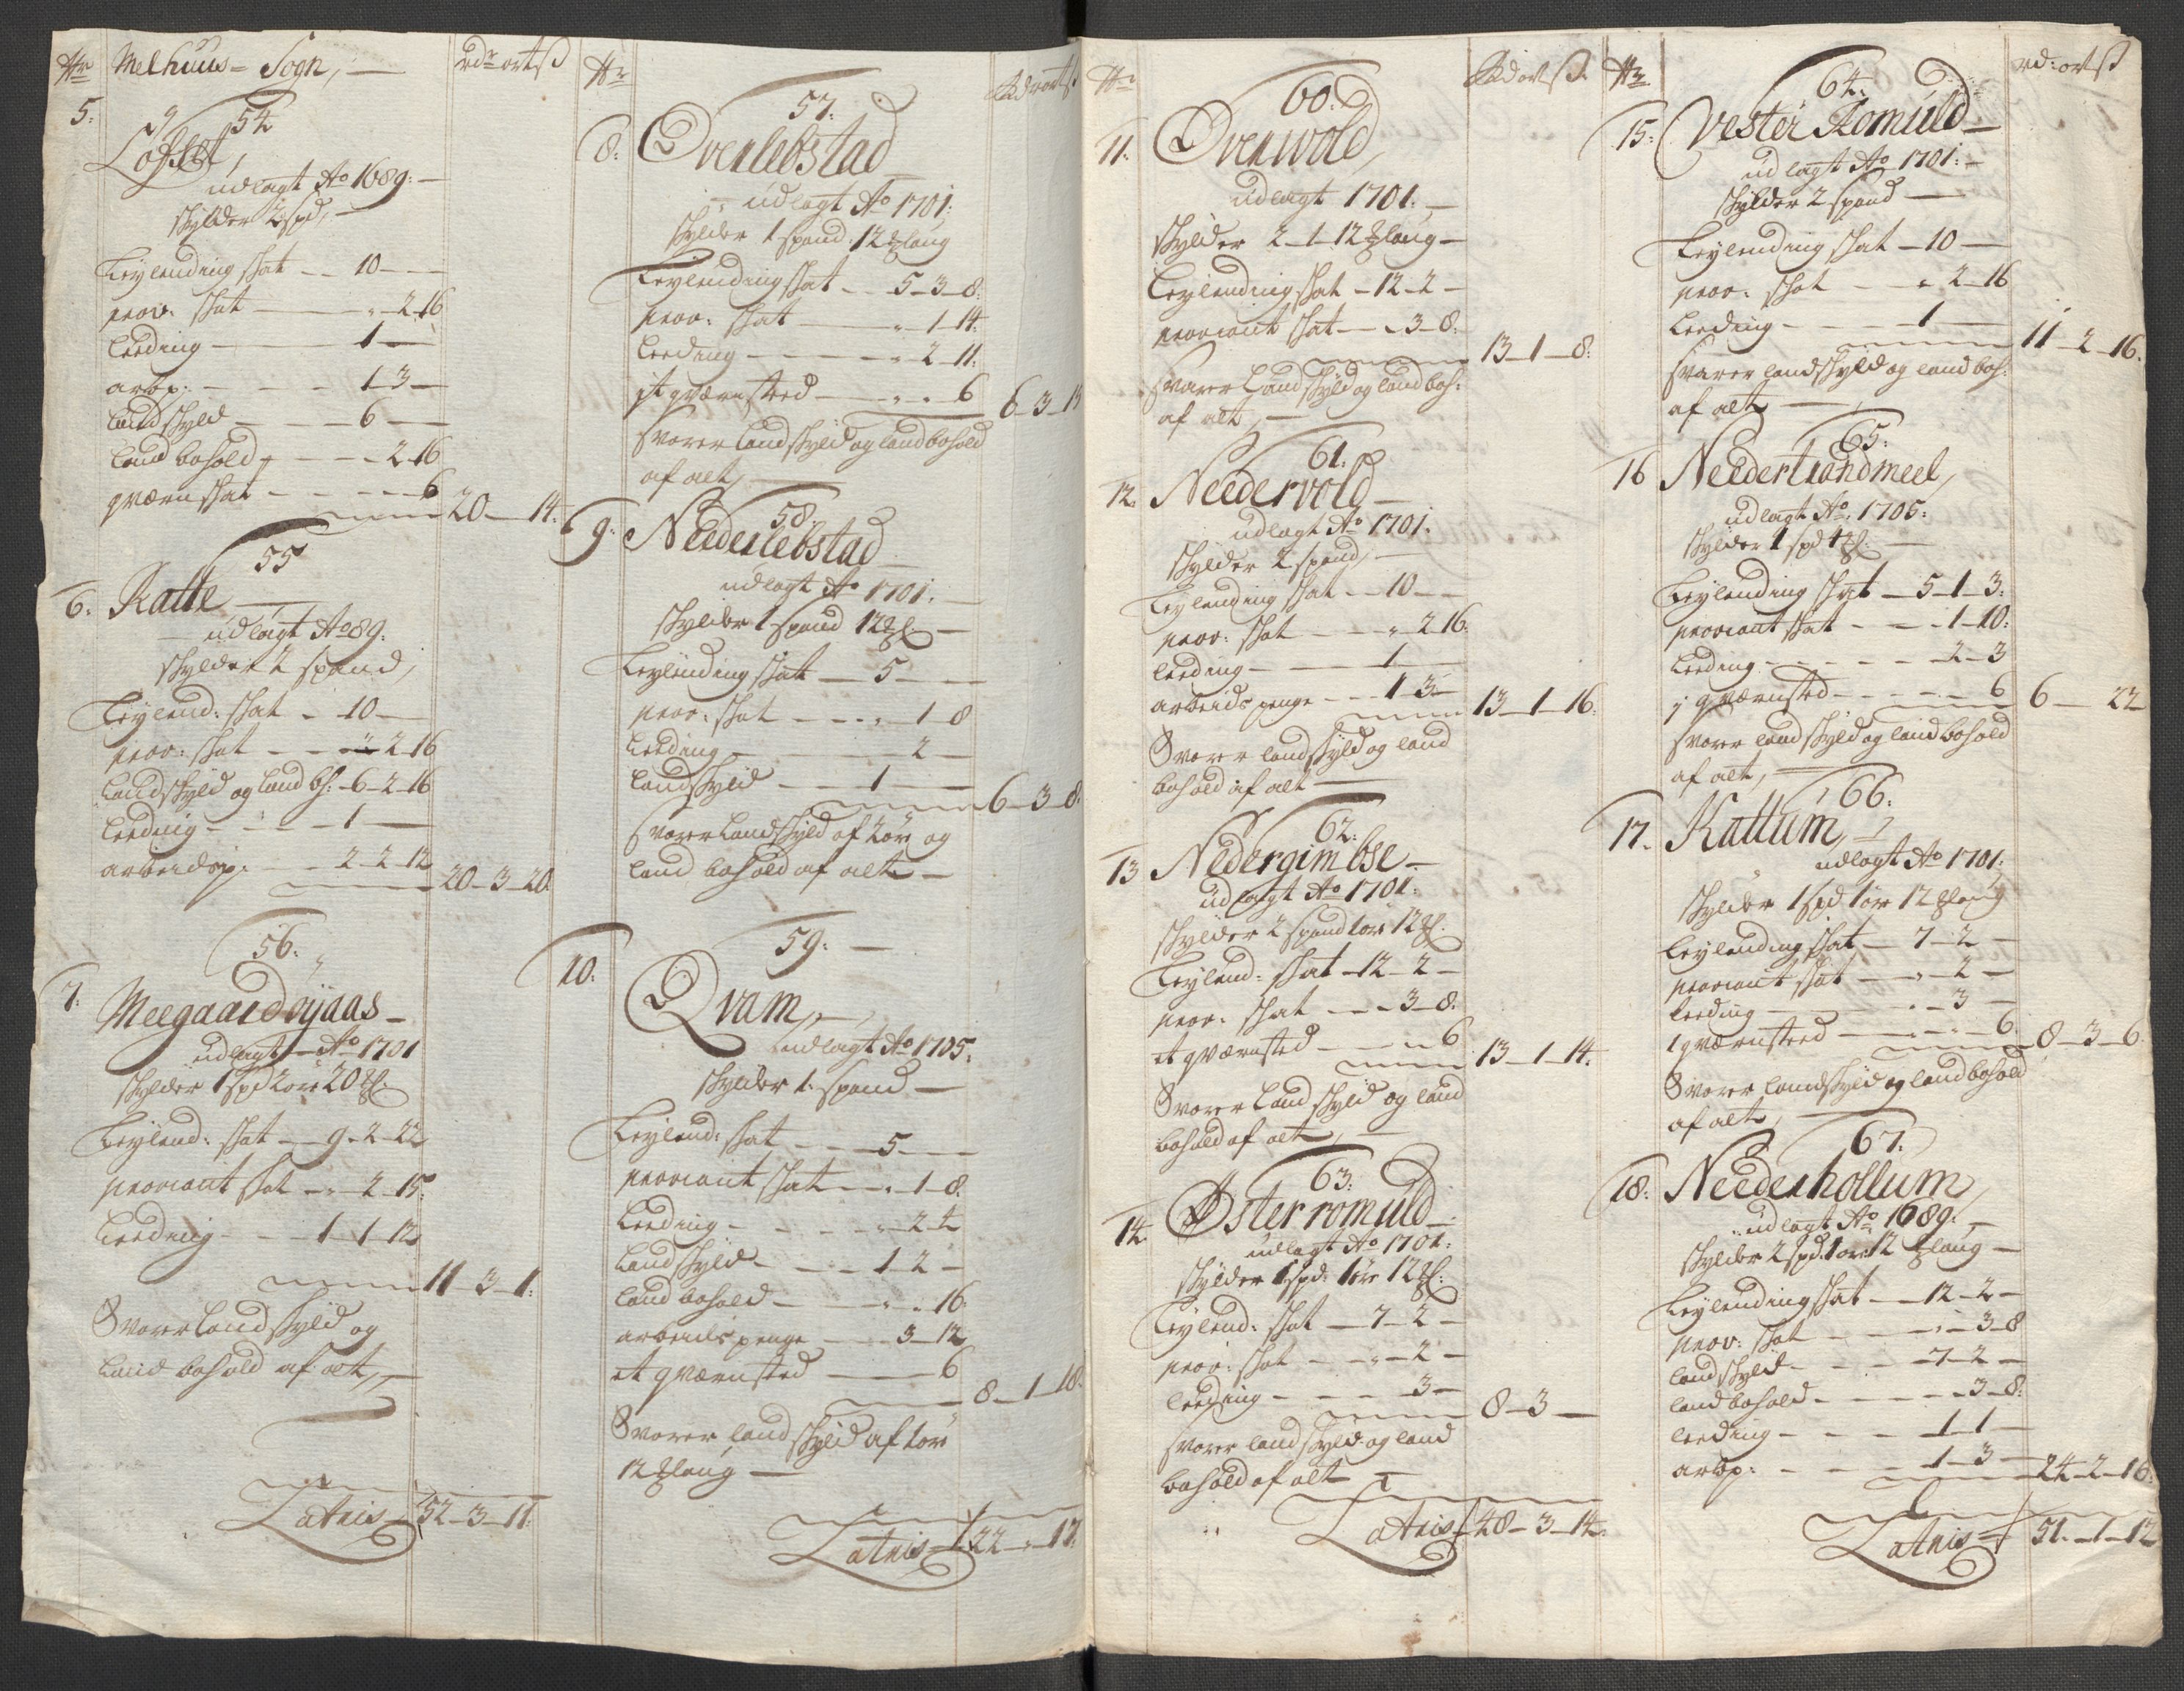 Nr Melhuus - Sogn, rdr ort ß
5.
54
udlagt Ao 1689:
skylder 2 spd,
Leylending skat 10
prov: skat 2-16
Leeding 1
arbp: 1 3
Land skyld 6
Land bohold 2-16
qværn skat 6 20 14:
55
6. Katte
udlagt Ao 89:
skylder 2 spand,
Leylend: skat 10
prov: skat 2-16
Land skyld og Land bh: 6-2-16
Leeding 1
arbeidsp: 2-2-12 20-3-20
56.
7. Meegaardsÿaas
udlagt Ao 1701
skylder 1 spd 2 ør 20 ℔.
Leylend: skat 9-2-22
proviant skat 2-15:
Leeding 1-1-12
11-3-1:
Svarer Land skyld og
Land bohold af alt,
Latris 52-3-11:
Nr Rdr ort ß
57.
8. Overlebstad
udlagt Ao 1701:
skylder 1 spand 12 ℔ laug
Leylending skat 5-3-8:
prov: skat 1-14:
Leeding 2-11:
it qværnsted 6 6-3-15
Svarer Land skyld og land bohold
af alt,
58.
9. Neederlebstad
udlagt Ao 1701.
skylder 1 spand 12 ℔.
Leylending skat 5
prov: skat 1-8
Leeding 2
Landskyld 1 6-3-8:
Svarer Landskyld af 2 ør og
Land bohold af alt
59.
10. Qvam,
udlagt Ao 1705:
skylder 1. spand
Leylend: skat 5
proviant skat 1-8.
Leeding 2-4
Land skyld 1-2
Land bohold 16:
arbeids penge 3-12
et qværnsted 6
8-1-18:
Svarer land skyld af 1 ør
12 ℔ laug
Latris 22 - 17:
Nr Rd ort ß.
60.
11. Overwold,
udlagt 1701:
skylder 2-1-12 ℔ laug
Leylending skat 12-2
proviant skat 3-8: 13-1-8:
Svarer Land skyld og land boh:
af alt,
61.
12. Needervold
udlagt Ao 1701.
skylder 2 spand,
Leylending skat 10
prov: skat 2-16:
Leeding 1
arbeids penge 1-3 13-1-16.
Svarer land skyld og land
bohold af alt
62.
13 Nedergimbse
udlagt Ao 1701:
skylder 2 spand 1 ør 12 ℔.
Leylend: skat 12-2
prov: skat 3-8:
et qværnsted 6 13-1-14:
Svarer Land skyld og land
bohold af alt,
63.
14. Øster romuld
udlagt Ao 1701:
skylder 1 spd: 1 ør 12 ℔.
Leylend: skat 7-2
prov: skat 2
Leeding 3
8-3
Svarer land skyld og land
bohold af alt
Latris 48-3-14:
Nr rd: ort ß
64.
15. Vester Romuld
udlagt Ao 1701:
skylder 2 spand
Leylending skat 10
prov: skat 2-16
Leeding 1 11-2-16.
Svarer land skyld og land boh:
af alt
65.
16 Needertrandmeel,
udlagt Ao 1705:
skylder 1 spd 4 ℔.
Leylending skat 5-1-3:
proviant skat 1-10:
Leeding 2-3
j qværnsted 6 6 22
Svarer land skyld og land bohold
af alt,
66.
17. Kattum,
udlagt Ao 1701:
skylder 1 spd 1 ør 12 ℔ laug
Leylending skat 7-2
proviant skat 2
Leeding 3
1 qværnsteed 6. 8-3-6
Svarer landskyld og land bohold
af alt,
67.
18. Neederhollum,
udlagt Ao 1689:
skylder 2 spd. 1 ør: 12 ℔ laug
Leylending skat 12-2
prov: skat 3-8
Landskyld 7-2
Land bohold 3-8:
Leeding 1-1
arbp: 1-3 24-2-16:
Latris 51-1-12